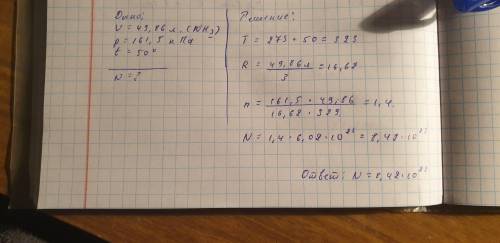 Дано:
V = 49,86 л. (NH₃)
p = 161,5 кПа
t = 50°
N = ?
Решение:
T = 273 + 50 = 323
R = 49,86 л / 3 = 16,62
n = 161,5 · 49,86 / 16,62 · 323 = 1,4.
N = 1,4 · 6,02 · 10²³ = 8,42 · 10²³
Ответ: N = 8,42 · 10²³